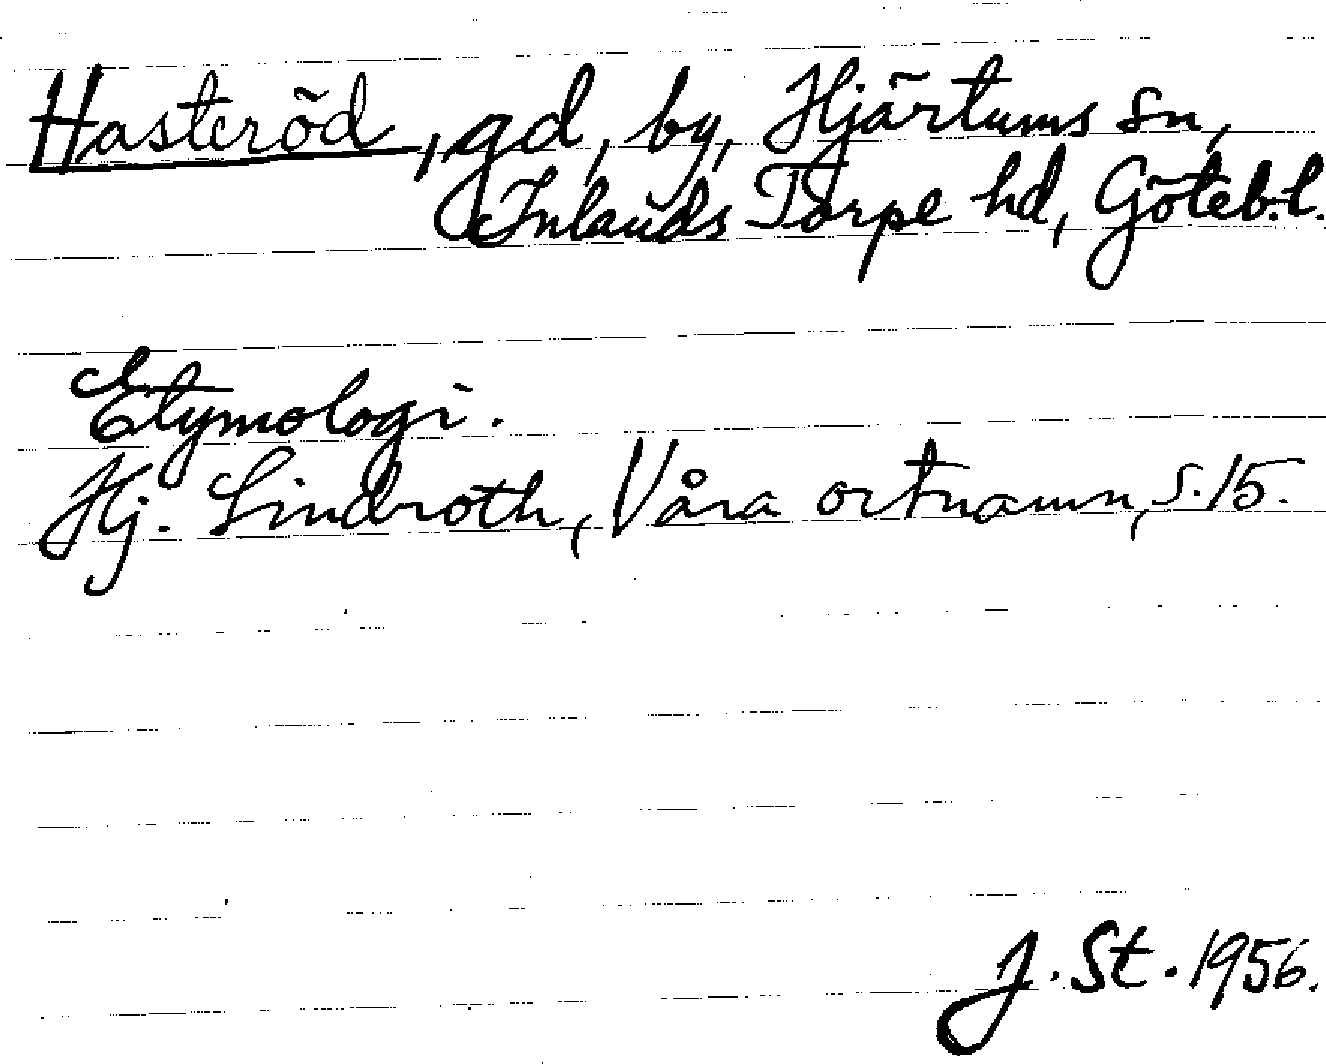 Hasteröd, gd, by, Hjärtums sn,
Inlands Torpe hd, Göteb.l.
Etymologi.
Hj. Lindroth, Våra ortnamn, s. 15.
J. St. 1956.